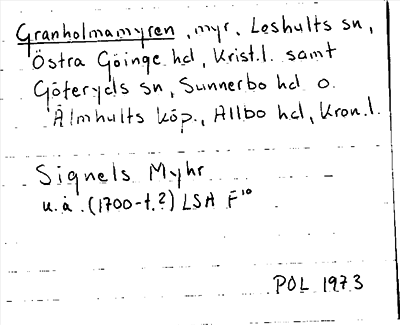 Granholmamyren, myr, Loshults sn,
Östra Göinge hd, Krist.l. samt
Göteryds sn, Sunnerbo hd o.
Älmhults köp., Allbo hd, Kron.l.
Signels Myhr
u.å. (1700-t.?) LSA F¹⁰
POL 1973